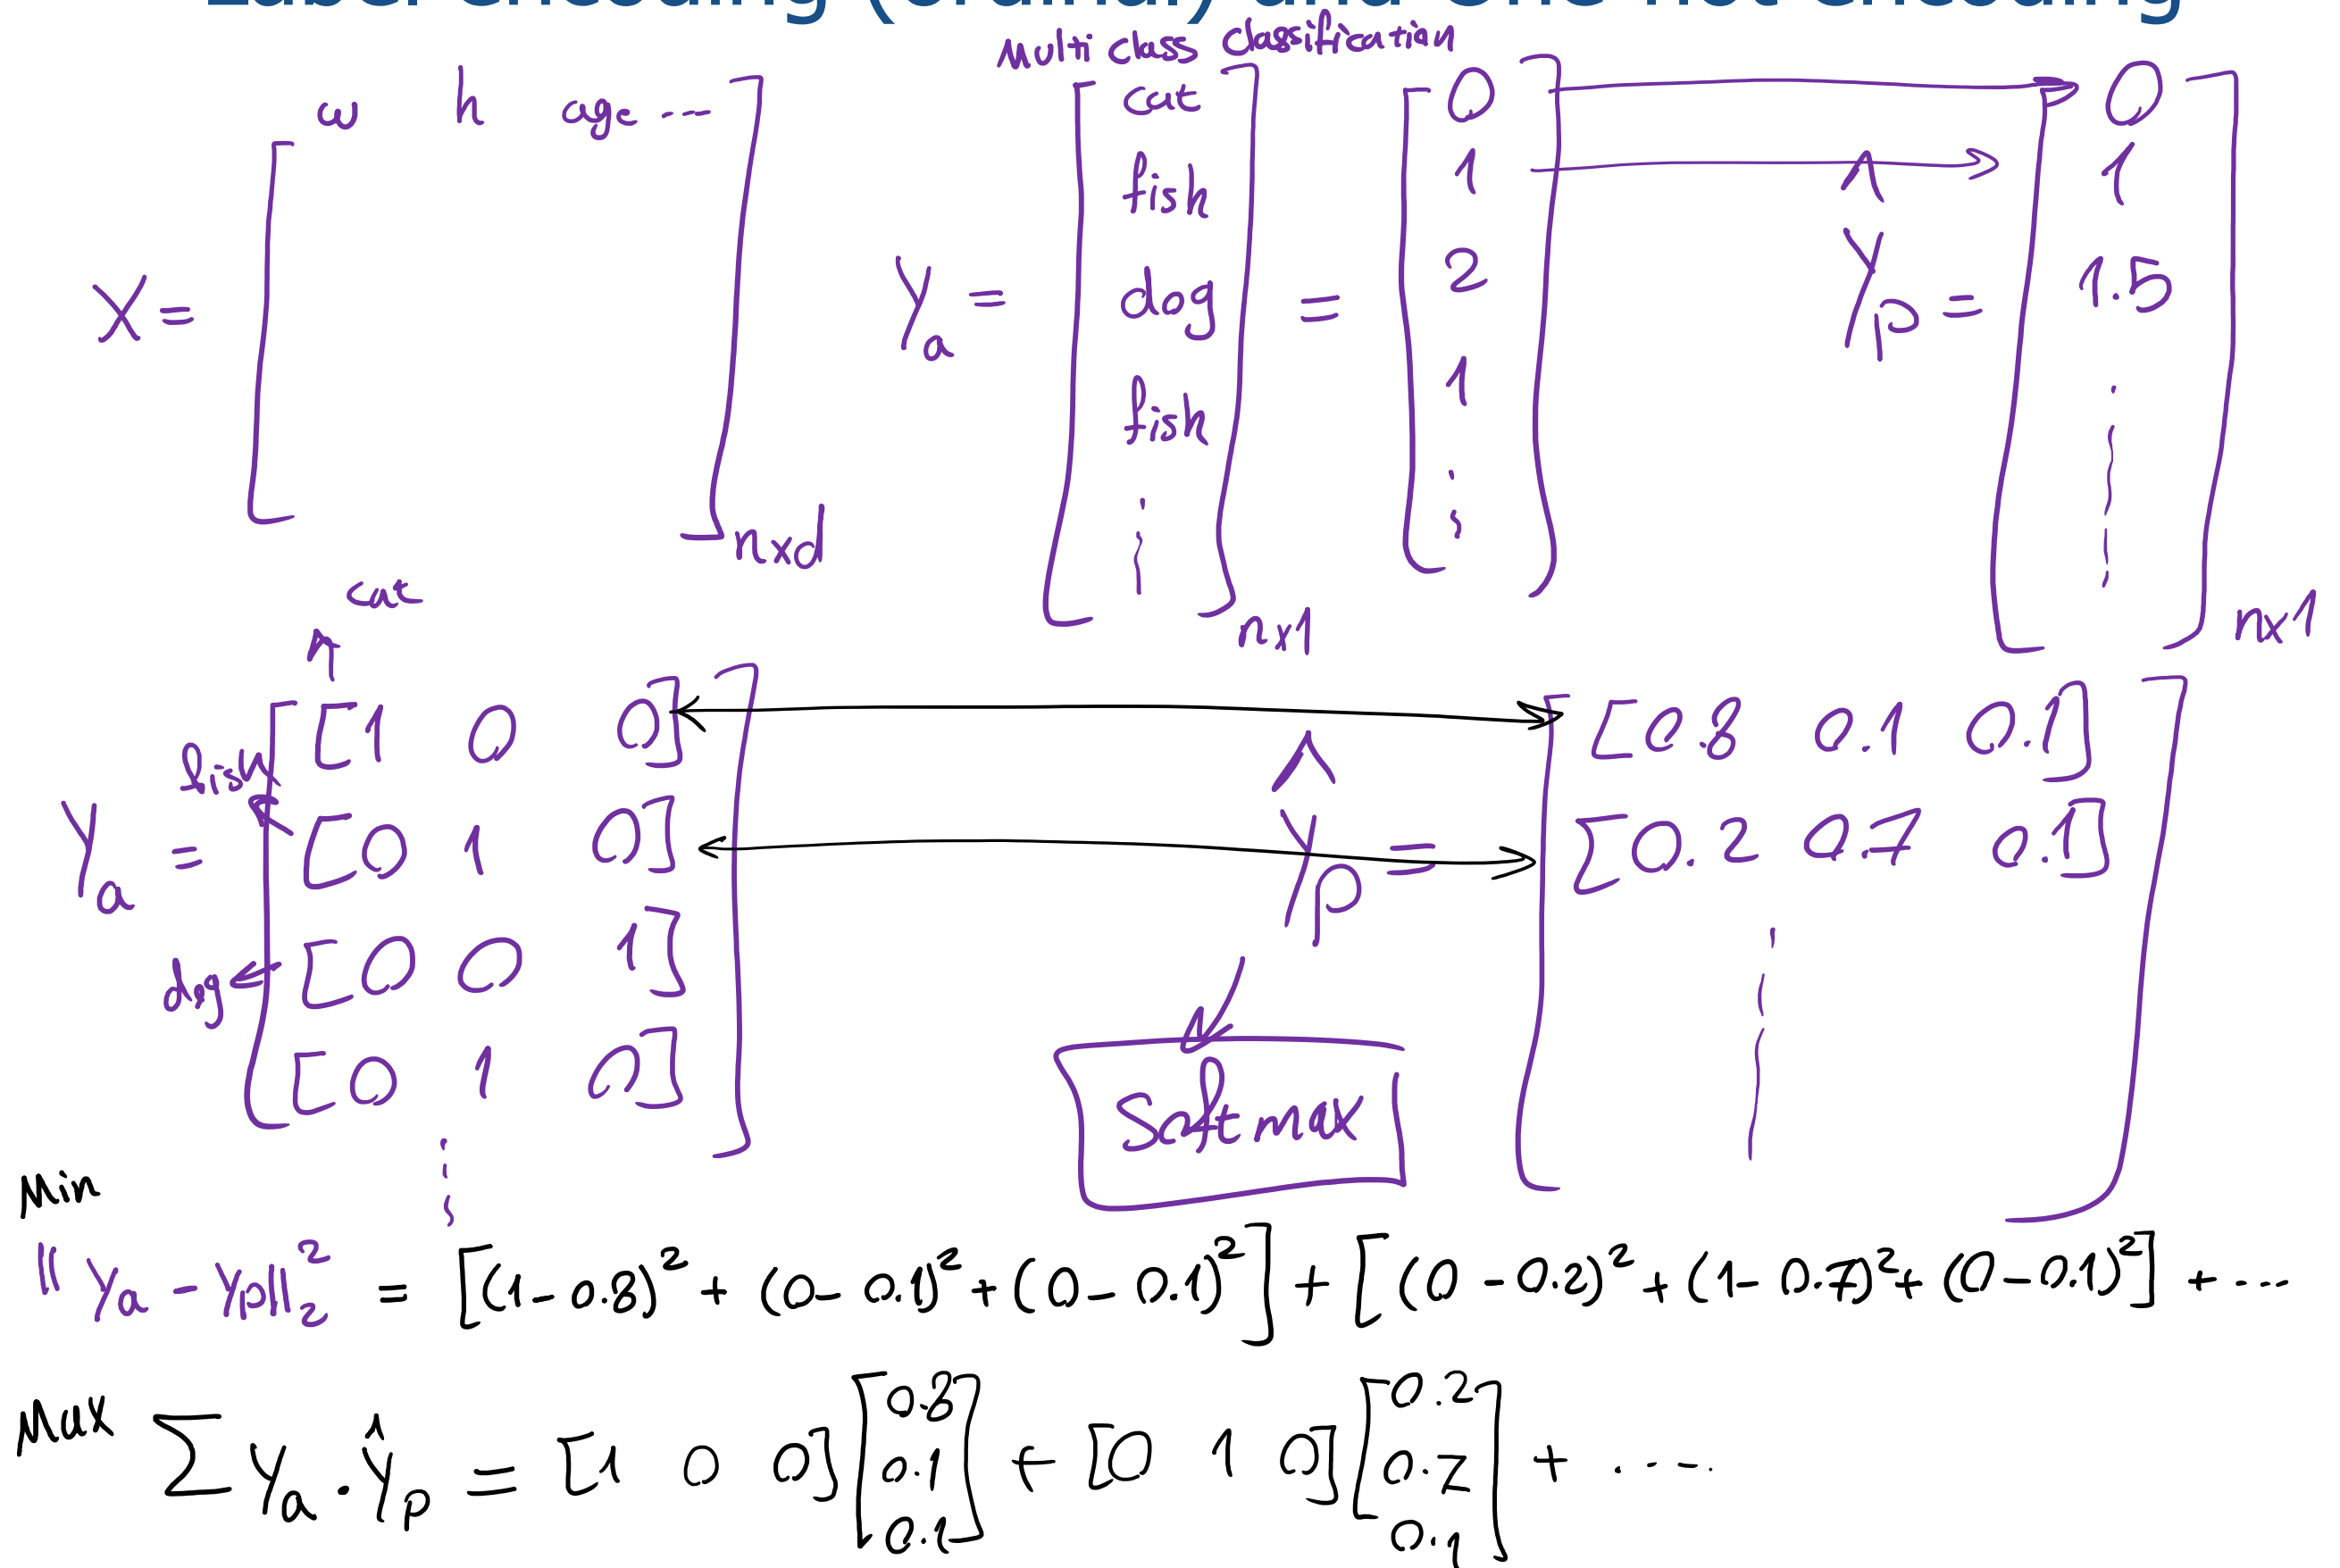 Multi class classification
w h age ---
X = [ ] nxd
Ya = [ cat fish dog fish ⋮ ] nx1 = [ 0 1 2 1 ⋮ ]
Ŷp = [ 0 1 1.5 ⋮ ] nx1
cat
fish
dog
Ya = [ [1 0 0]
[0 1 0]
[0 0 1]
[0 1 0]
⋮ ]
Ŷp = [ [0.8 0.1 0.1]
[0.2 0.7 0.1]
⋮ ]
Softmax
Min
||Ya - Yp||₂² = [(1-0.8)² + (0-0.1)² + (0-0.1)²] + [(0-0.2)² + (1-0.7)² + (0-0.1)²] + ---
Max ∑ Ya · Ŷp = [1 0 0] [0.8 0.1 0.1] + [0 1 0] [0.2 0.7 0.1] + ----